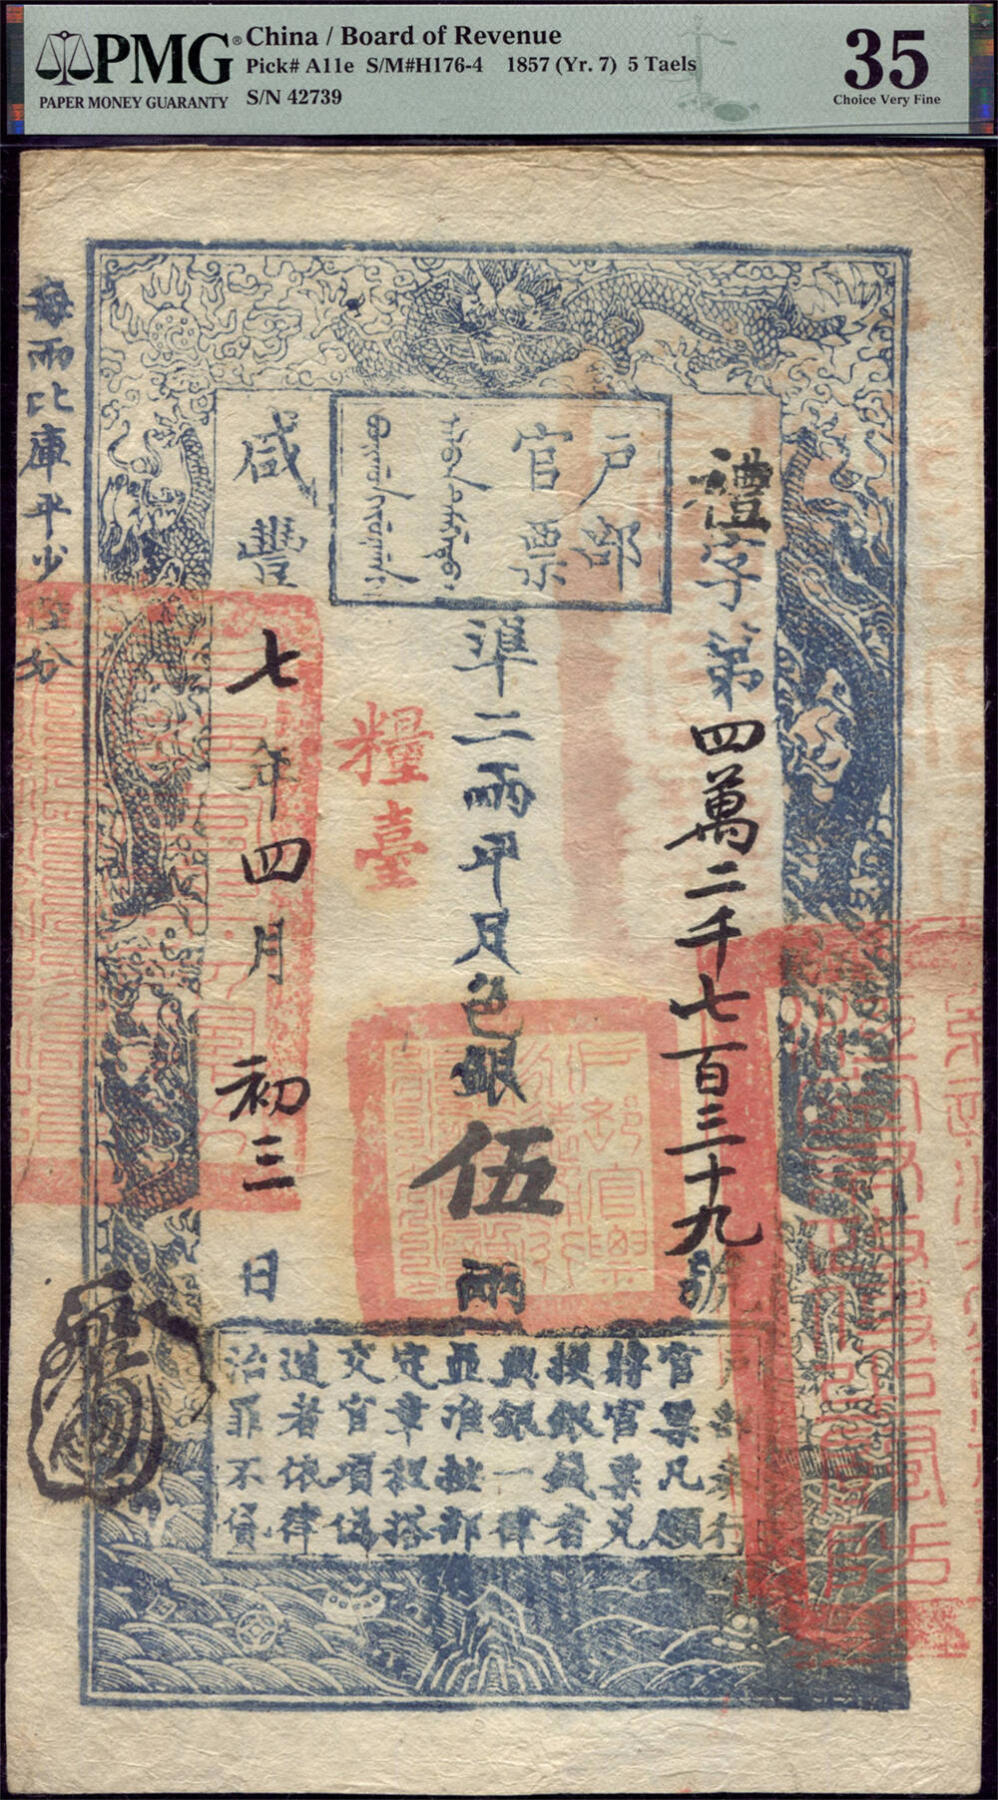 PMG®
PAPER MONEY GUARANTY
China / Board of Revenue
Pick# A11e S/M#H176-4 1857 (Yr. 7) 5 Taels
S/N 42739
35
Choice Very Fine
戶部
官票
禮字第四萬二千七百三十九號
準二兩平足色銀伍兩
糧臺
咸豐七年四月初三日
每兩比庫平少陸分
戶部奏行
官票凡願
將官票兌
換銀錢者
與銀一律
並准按部
定章程搭
交官項偽
造者依律
治罪不貸